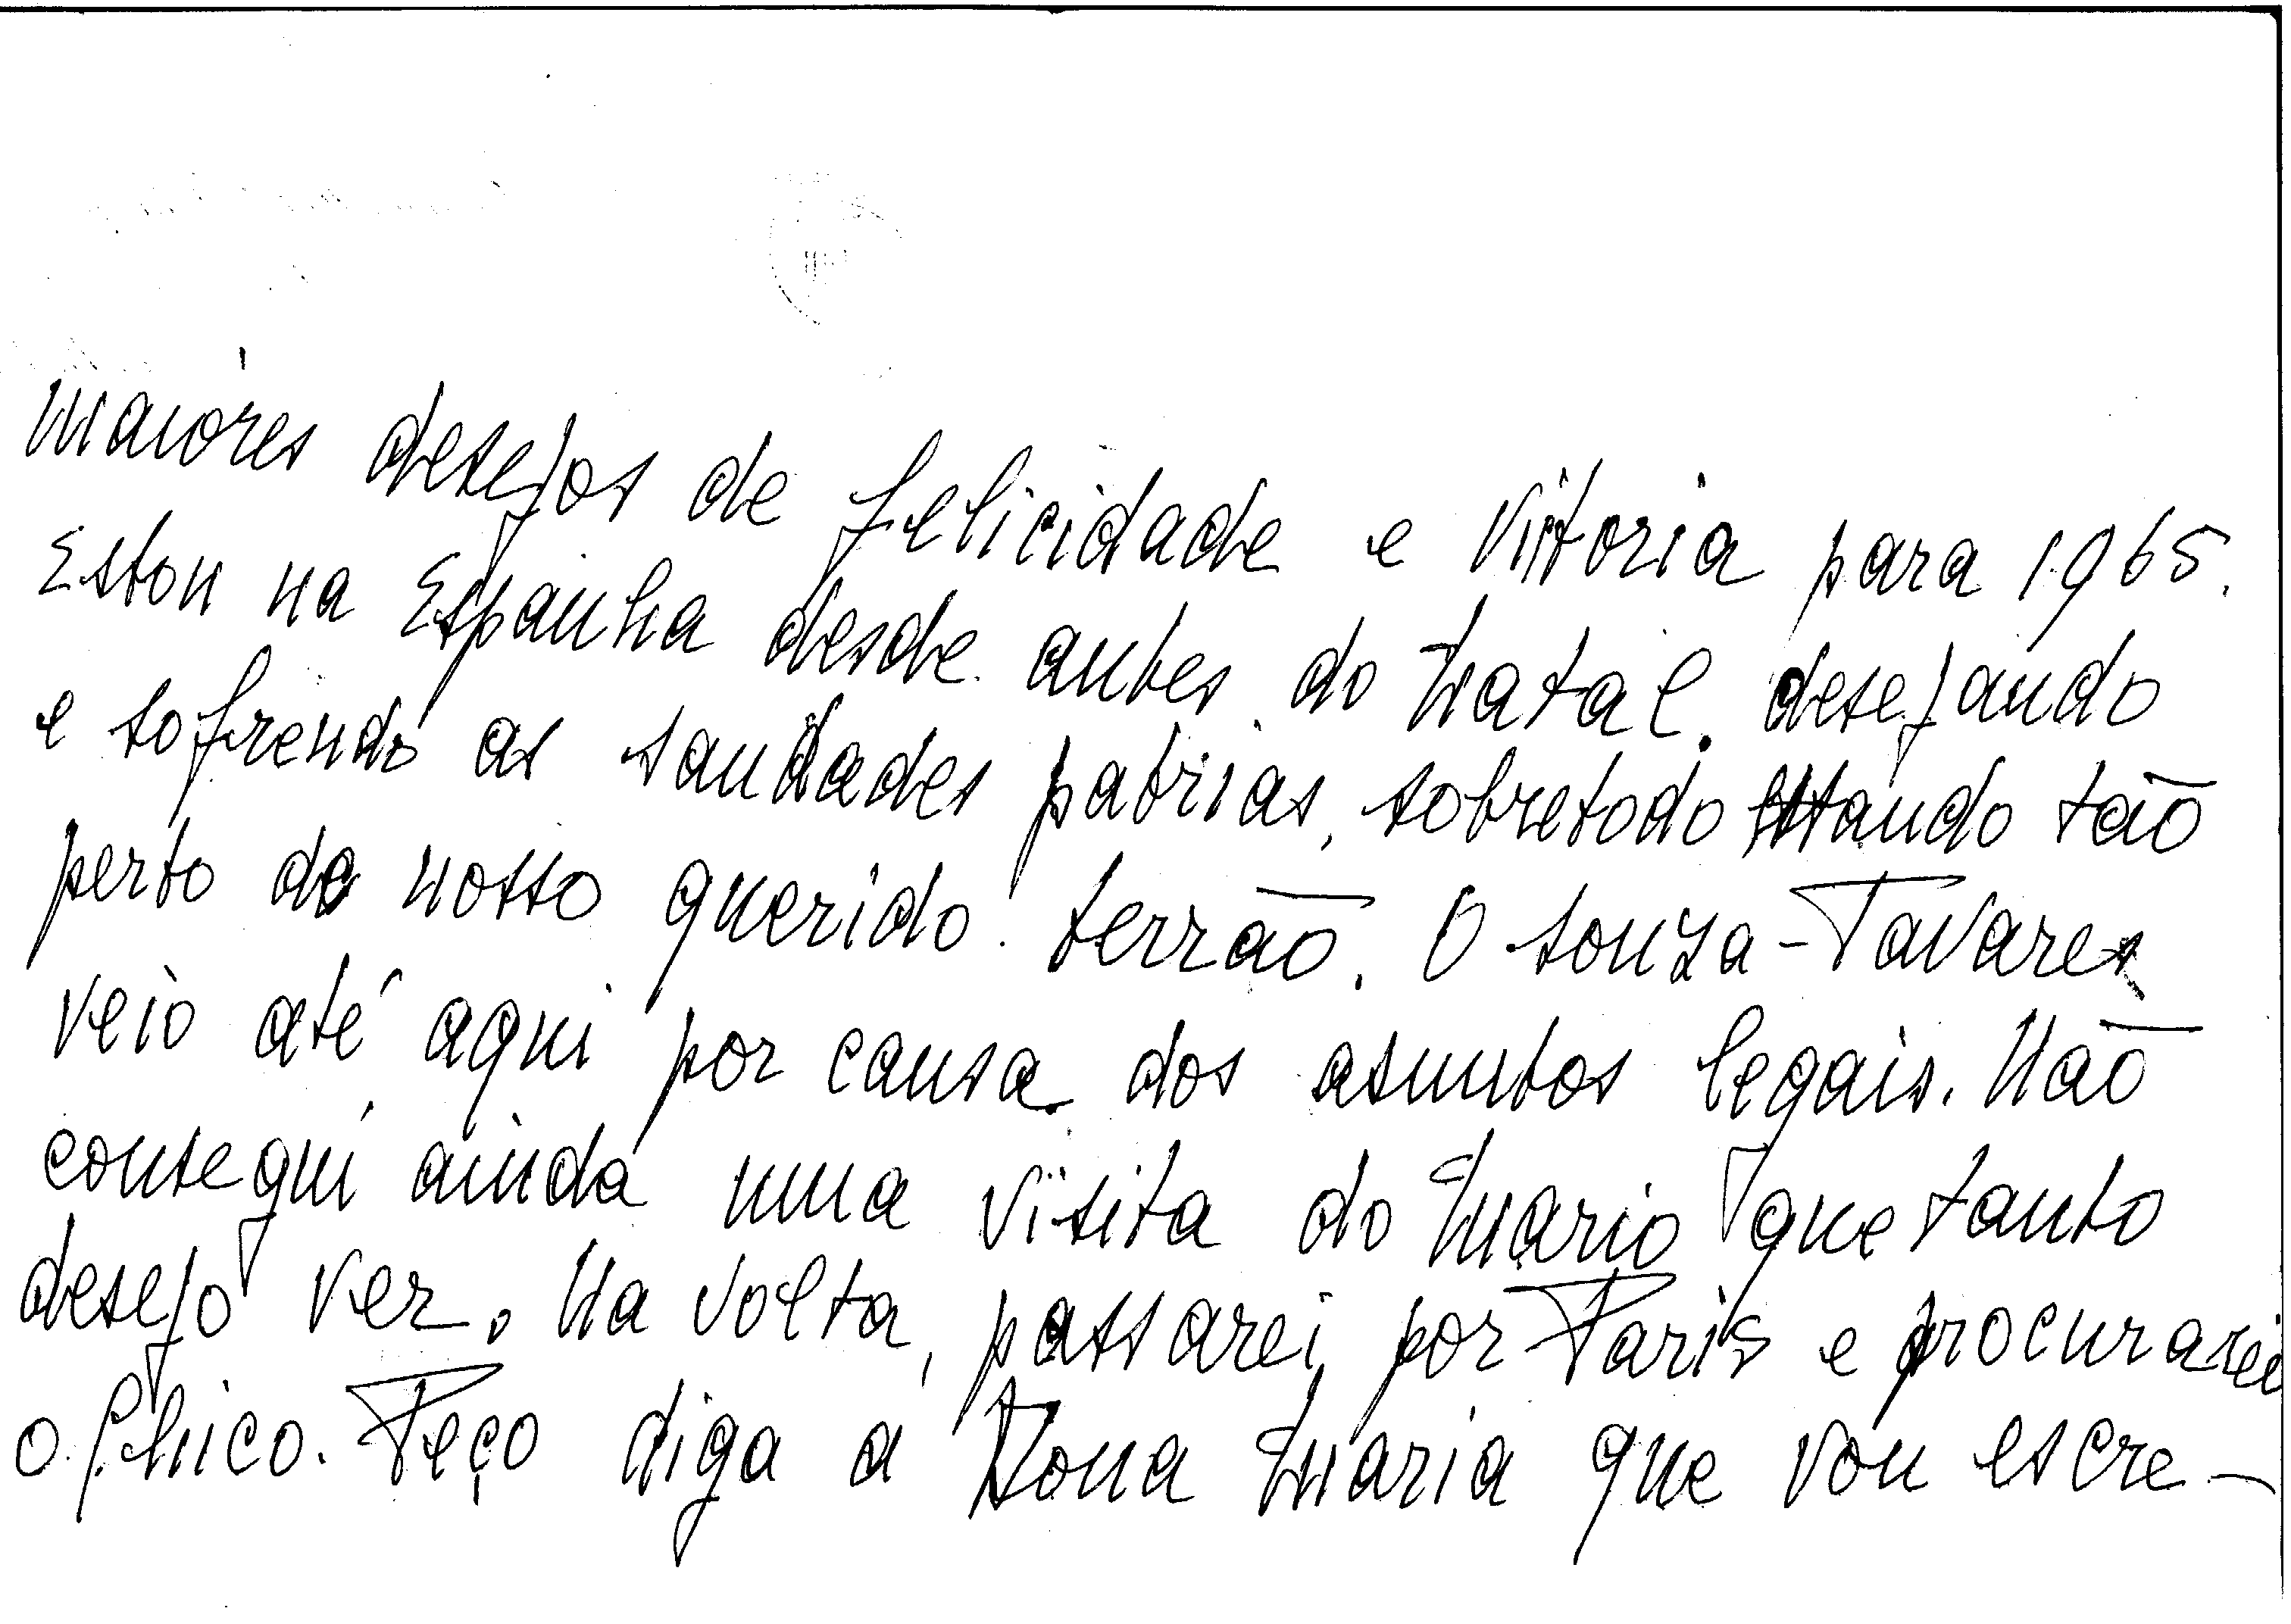 maiores desejos de felicidade e Vitoria para 1965.
Estou na Espanha desde antes do Natal, desejando
e sofrendo as saudades patrias, sobretodo estando tão
perto do nosso querido terrão. O Souza-Tavares
veio até aqui por causa dos asuntos legais. Não
consegui ainda uma visita do Mario que tanto
desejo ver. Na volta, passarei por Paris e procurarei
o Chico. Peço diga a Dona Maria que vou escre-